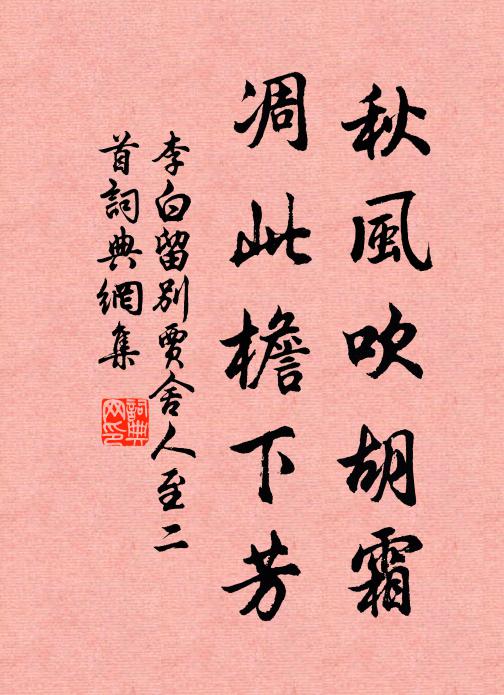 秋風吹胡霜
凋此檐下芳
李白留別賈舍人至二
首詞典網集
詞典
网印